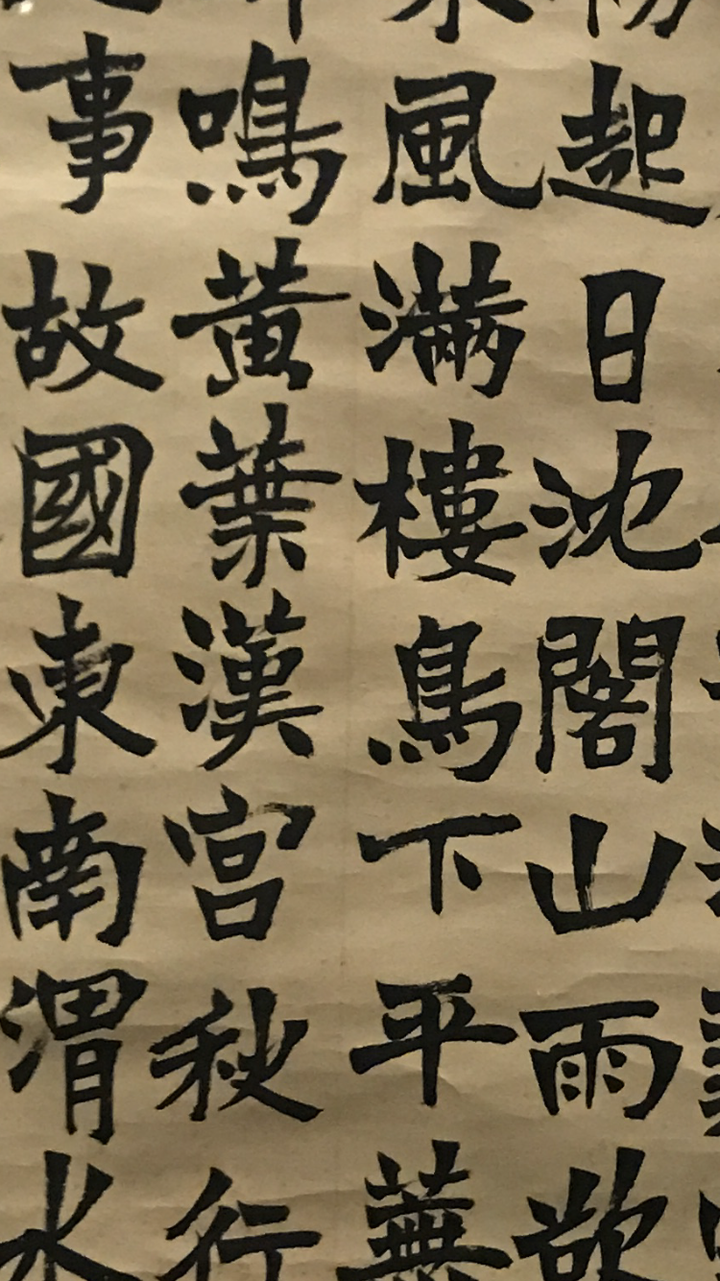 起日沈閣山雨欲
風滿樓鳥下平蕪
鳴黃葉漢宮秋行
事故國東南渭水